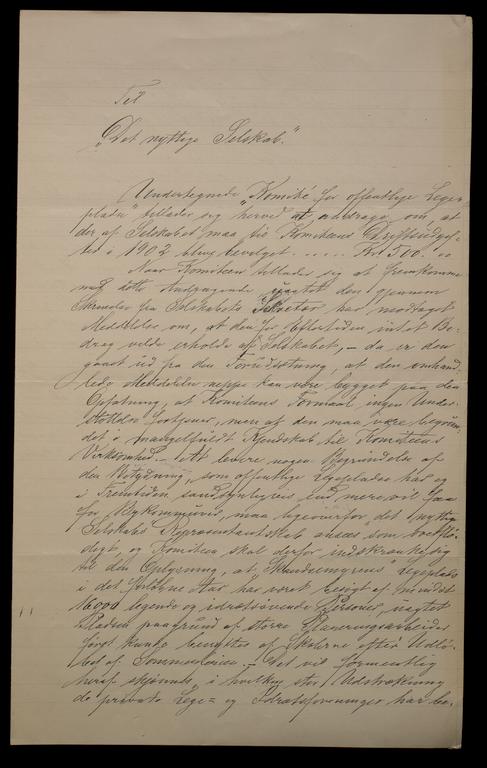 Til
„Det nyttige Selskab."
Undertegnede „Komité for offentlige Lege-
pladse" tillader sig herved at andrage om, at
der af Selskabet maa til Komiteens Driftsudgif-
ter i 1902 blive bevilget ..... Kr 500.00
Naar Komiteen tillader sig at fremkomme
med dette Andragende uagtet den gjennem
Skrivelse fra Selskabets Sekretær har modtaget
Meddelelse om, at den for Eftertiden intet Be-
drag vilde erholde af Selskabet, – da er den
gaaet ud fra den Forudsætning, at den omhand-
lede Meddelelse neppe kan være bygget paa den
Opfatning, at Komiteens Formaal ingen Under-
støttelse fortjener, men at den maa være begrun-
det i mangelfuldt Kjendskab til Komiteens
Virksomhed. – At levere nogen Begrundelse af
den Betydning, som offentlige Legepladse har og
i Fremtiden sandsynligvis end mere vil faa
for Bykommuner, maa ligeoverfor „det nyttige
Selskabs" Repræsentantskab ansees som overflø-
digt, og Komiteen skal derfor indskrænke sig
til den Oplysning, at Legeplads
i det forløbne Aar har været besøgt af mindst
16000 legende og idrætsøvende Personer uagtet
Pladsen paa grund af større Planeringsarbeider
først kunde benyttes af Skolerne efter Udlø-
bet af Sommerferien. – Det vil formentlig
heraf skjønnes, i hvilken stor Udstrækning
de private Lege- og Idrætsforeninger har be-